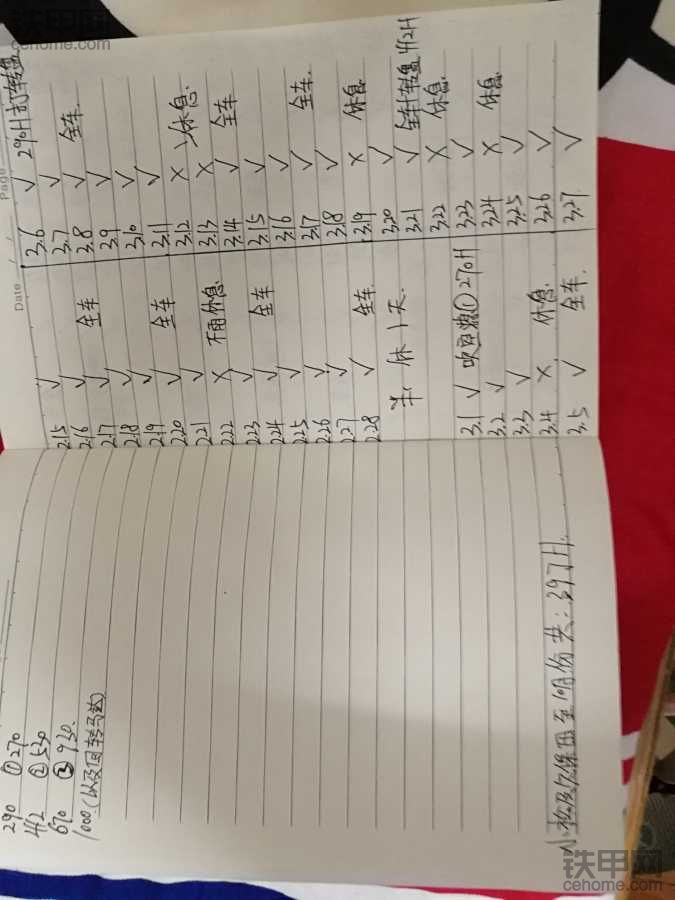 290 ①270
412 ②530
670 ③930.
1000.(以及回转马达)
共:397H.
Date
2.15 ✓
2.16 ✓
2.17 ✓ 全车
2.18 ✓
2.19 ✓
2.20 ✓ 全车
2.21 ✓
2.22 × 休息.
2.23 ✓
2.24 ✓ 全车
2.25 ✓
2.26 ✓
2.27 ✓
2.28 ✓ 全车
休1天.
3.1 ✓ ①270H
3.2 ✓
3.3 ✓
3.4 × 休息.
3.5 ✓ 全车.
Page
3.6 ✓ 290H打转盘
3.7 ✓
3.8 ✓ 全车
3.9 ✓
3.10 ✓
3.11 ✓
3.12 × 休息.
3.13 ×
3.14 ✓ 全车
3.15 ✓
3.16 ✓
3.17 ✓ 全车.
3.18 ✓
3.19 × 休息.
3.20 ✓
3.21 ✓ 全车+转盘 412H
3.22 × 休息.
3.23 ✓
3.24 × 休息.
3.25 ✓
3.26 ✓
3.27 ✓
铁甲网
cehome.com
铁甲网
cehome.com